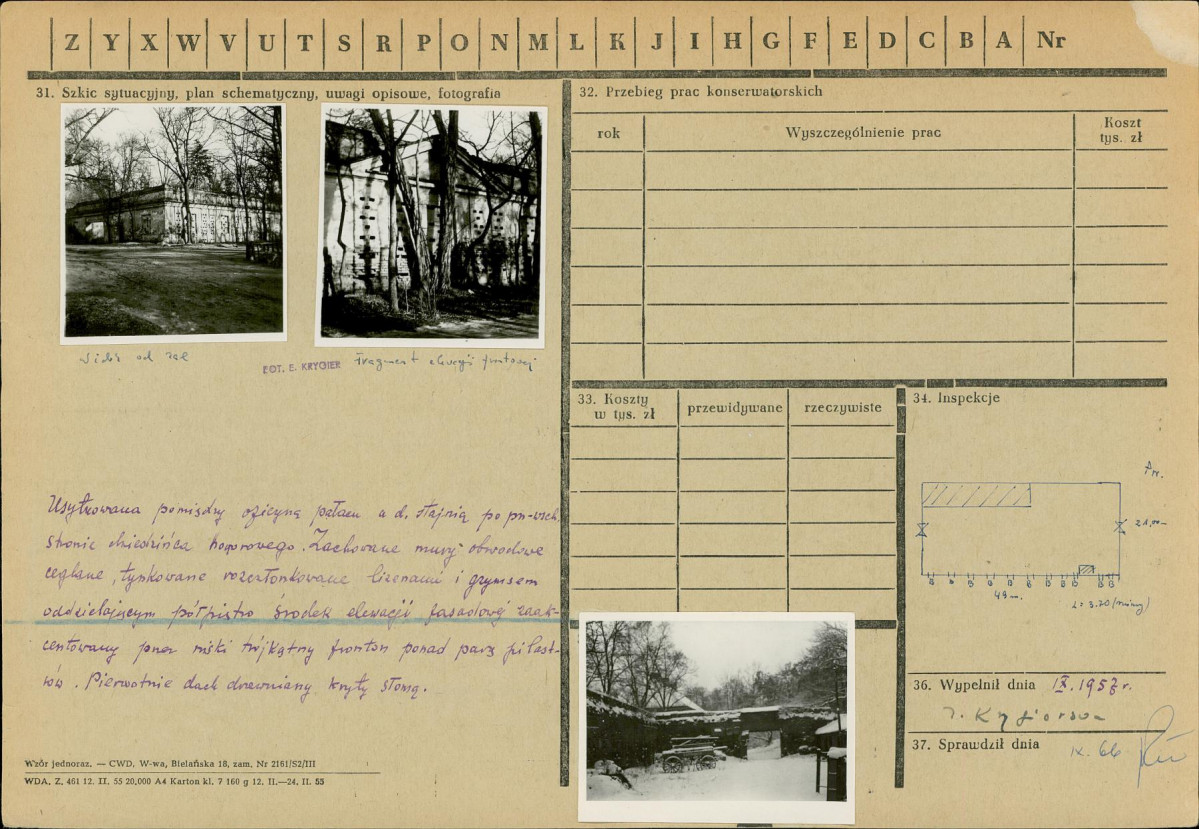 Z Y X W V U T S R P O N M Ł K J I H G F E D C B A Nr
31. Szkic sytuacyjny, plan schematyczny, uwagi opisowe, fotografia
Widok od zach
FOT. E. KRYGIER Fragment elewacji frontowej
Usytuowana pomiędzy oficyną pałacu a d. stajnią po pn-wsch.
stronie dziedzińca honorowego. Zachowane mury obwodowe
ceglane, tynkowane rozczłonkowane lizenami i gzymsem
oddzielającym półpiętro środek elewacji fasadowej zaak-
centowany przez niski trójkątny fronton ponad parą pilast-
rów. Pierwotnie dach drewniany kryty słomą.
Wzór jednoraz. — CWD, W-wa, Bielańska 18, zam. Nr 2161/S2/III
WDA. Z. 461 12. II. 55 20,000 A4 Karton kl. 7 160 g 12. II.—24. II. 55
32. Przebieg prac konserwatorskich
rok Wyszczególnienie prac Koszt tys. zł
33. Koszty w tys. zł przewidywane rzeczywiste
34. Inspekcje
21,00
49 m.
36. Wypełnił dnia IX.1957 r.
37. Sprawdził dnia IX. 66